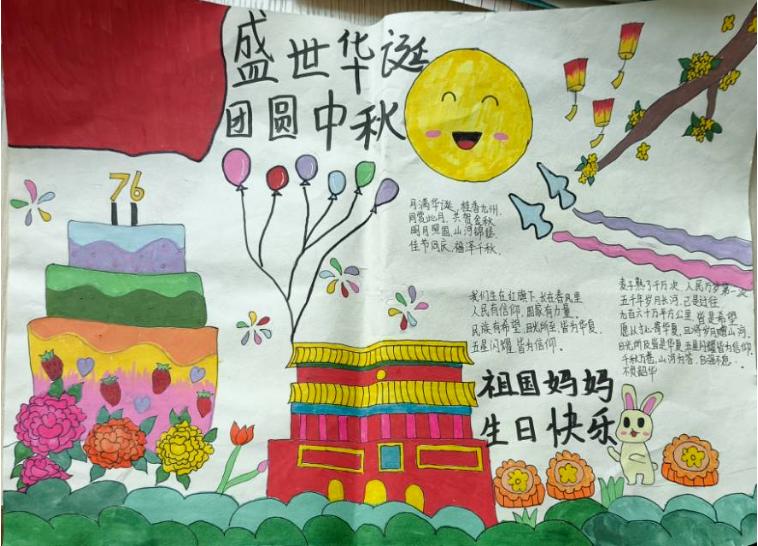 盛世华诞
团圆中秋
76
月满华诞,桂香九州,
同赏此月,共贺金秋
明月照国,山河锦绣
佳节同庆,福泽千秋
我们生在红旗下,长在春风里
人民有信仰,国家有力量。
民族有希望,目光所至 皆为华夏,
五星闪耀 皆为信仰。
麦子熟了千万次 人民万岁第一次
五千年岁月长河,已是过往
九百六十万平方公里,皆是希望
目光所及皆是华夏 五星闪耀皆为信仰
祖国妈妈
生日快乐